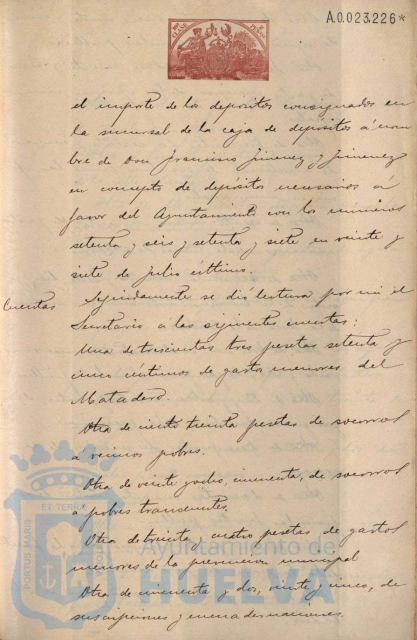 A.0.023.226*
el importe de los depósitos consignados en
la sucursal de la caja de depósitos á nom
bre de Don Francisco Jimenez y Jimenez
en concepto de depósitos necesarios á
favor del Ayuntamiento con los números
setenta y seis y setenta y siete en veinte y
siete de Julio último.
Cuentas
Seguidamente se dió lectura por mi el
Secretario a las siguientes cuentas:
Una de trescientas tres pesetas setenta y
cinco céntimos de gastos menores del
Matadero.
Otra de ciento treinta pesetas de socorros
a vecinos pobres.
Otra de veinte y ocho, cincuenta, de socorros
a pobres transeuntes.
Otra de treinta y cuatro pesetas de gastos
menores de la prevencion municipal
Otra de cincuenta y dos, veinte y cinco, de
suscripciones y encuadernaciones.
PORTUS MARIS
ET TERRAE
Ayuntamiento de
HUELVA